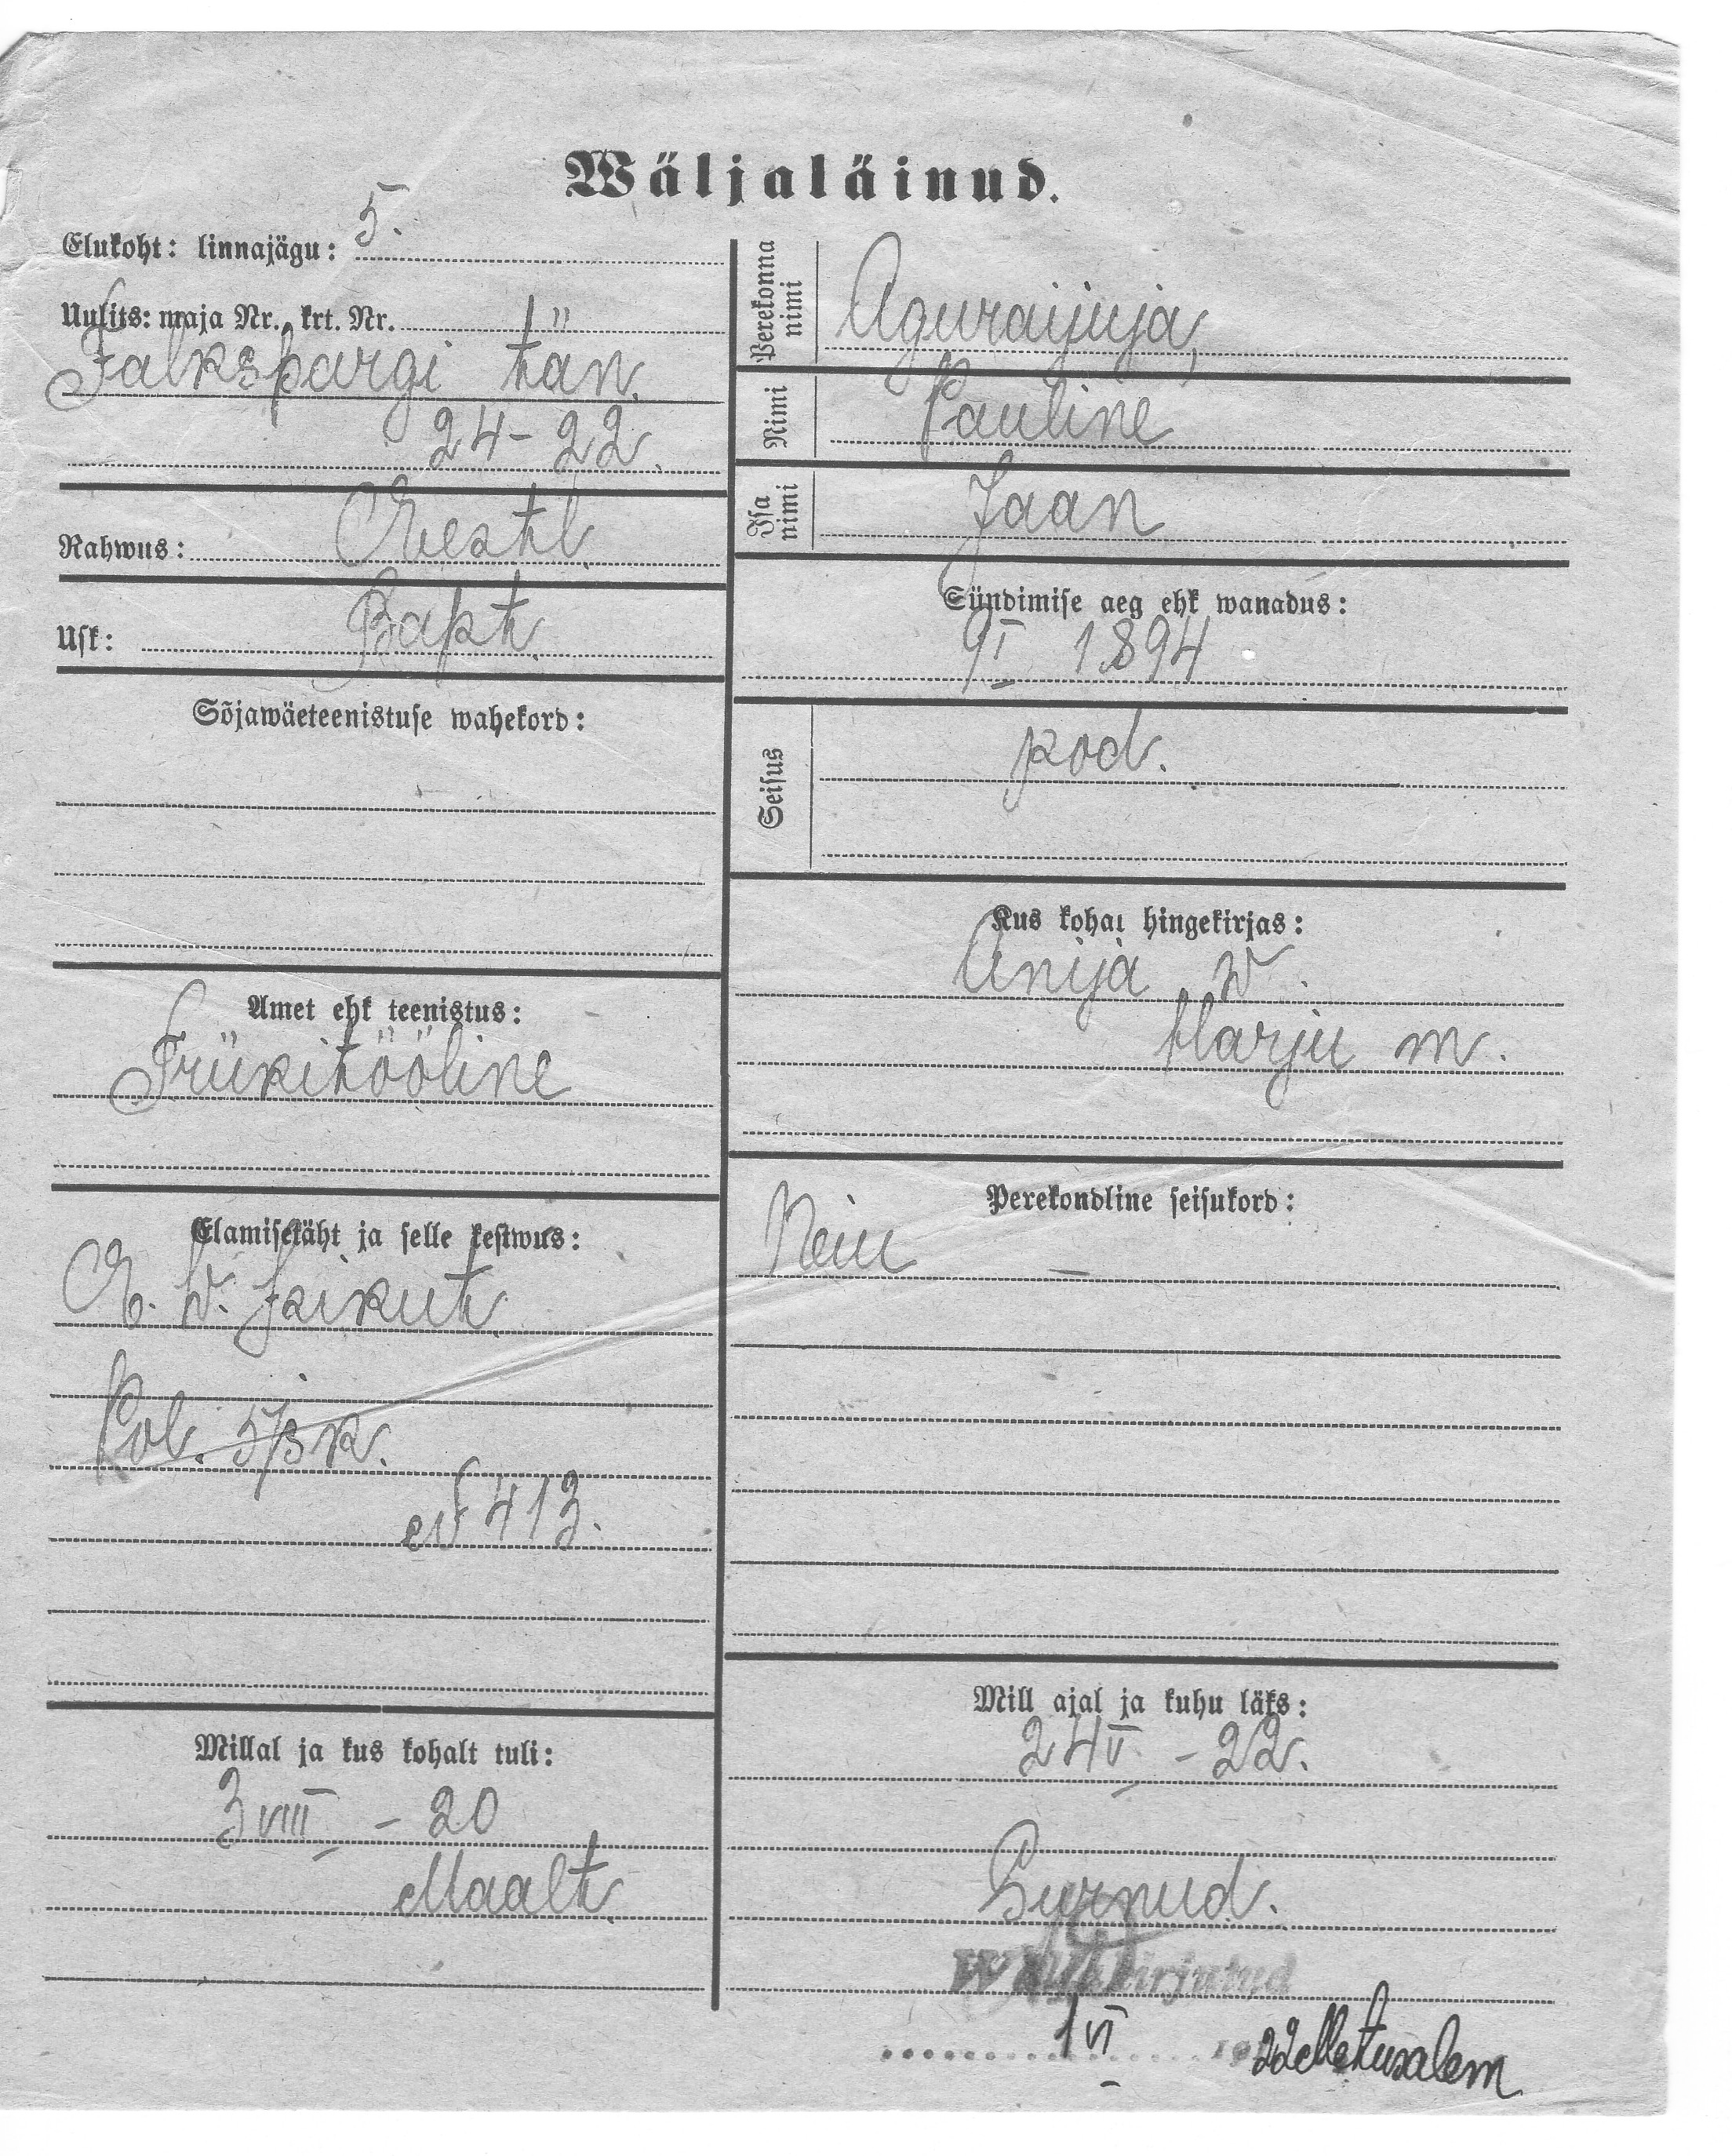 Wäljaläinud.
Elukoht: linnajägu: 5.
Uulits: maja Nr. krt. Nr.
Falkspargi tän.
24-22.
Rahwus: Eesti
Usk: Bapt.
Sõjawäeteenistuse wahekord:
Amet ehk teenistus:
Trükitööline
Elamisetäht ja selle kestwus:
E. W. Isikut.
Pol. 5/3 k.
№ 413.
Millal ja kus kohalt tuli:
3 VIII - 20
Maalt
Perekonna nimi
Aguraijuja,
Nimi Pauline
Isa nimi Jaan
Sündimise aeg ehk wanadus:
9 I 1894
Seisus kod.
Kus kohal hingekirjas:
Anija w.
Harju m.
Perekondline seisukord:
Neiu
Mill ajal ja kuhu läks:
24 V - 22.
Surnud.
Wäljakirjutud
1 VI 1922 Metusalem